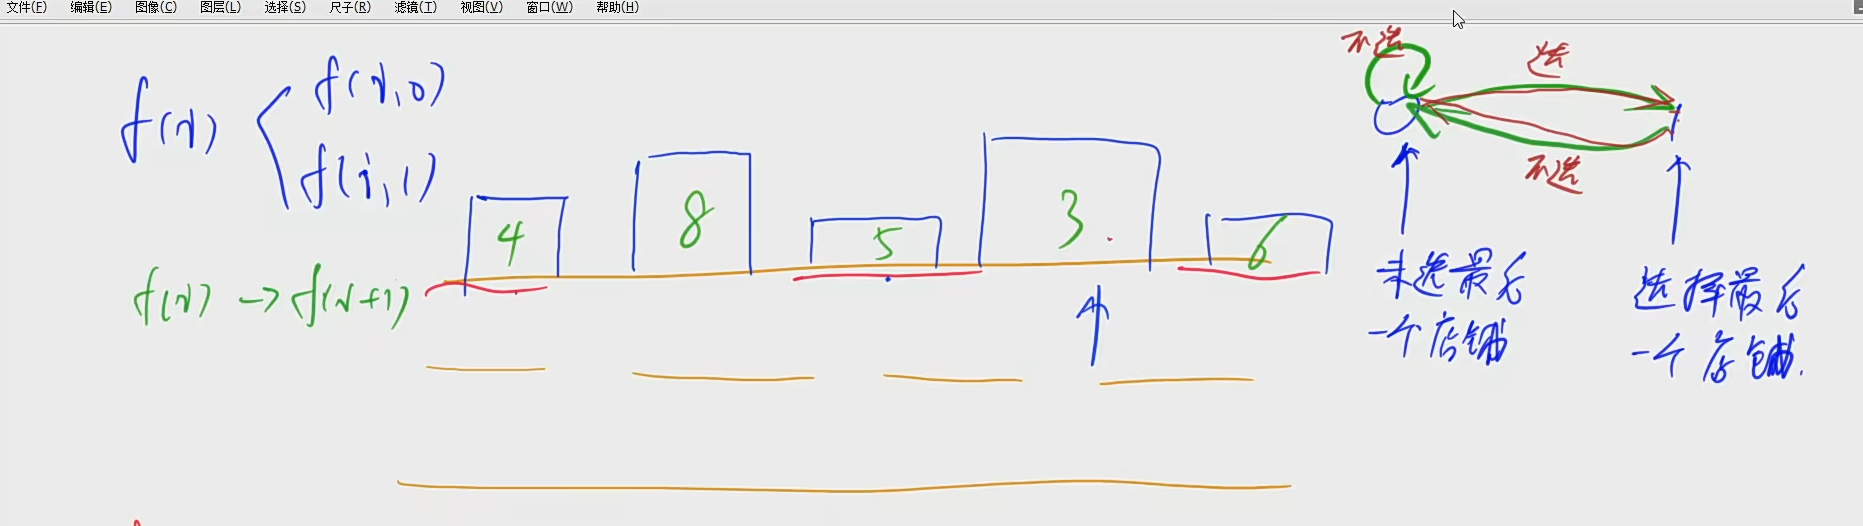 文件(F) 编辑(E) 图像(C) 图层(L) 选择(S) 尺子(R) 滤镜(T) 视图(V) 窗口(W) 帮助(H)
f(i)
f(i,0)
f(i,1)
f(i) -> f(i+1)
4 8 5 3 6
不选
选
不选
未选最后
一个店铺
选择最后
一个店铺.